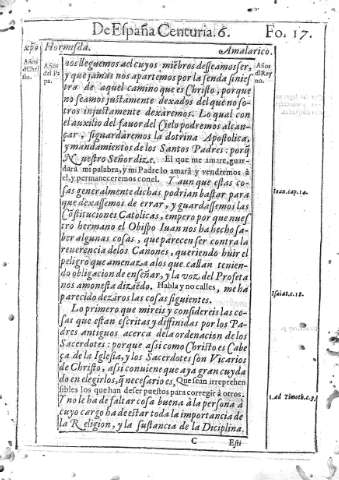 De España Centuria. 6. Fo. 17.
xp̃o Hormisda. Amalarico.
Años del Christo.
Años del Papa.
Años del Rey no.
nos lleguemos al cuyos miẽbros desseamos ser,
y que jamas nos apartemos por la senda sinies
tra de aquel camino que es Christo, porque
no seamos justamente dexados del que noso
tros injustamente dexaremos. Lo qual con
el auxilio del fauor del Cielo podremos alcan-
çar, si guardaremos la dotrina Apostolica,
y mandamientos de los Santos Padres: porq̃
N uestro Señor dize. El que me amare, guar
dará mi palabra, y mi Padre lo amará y vendremos à
el, y permaneceremos con el. Y aun que estas co
sas generalmente dichas podrian bastar para
que dexassemos de errar, y guardassemos las
Cõstituciones Catolicas, empero por que nues
tro hermano el Obispo Iuan nos ha hecho sa
ber algunas cosas, que parecen ser contra la
reuerencia de los Canones, queriendo huir el
peligro que amenaza a los que callan tenien-
do obligacion de enseñar, y la voz del Profeta
nos amonesta diziẽdo. Habla y no calles, me ha
parecido deziros las cosas siguientes.
Lo primero que mireis y considereis las co-
sas que estan escritas y diffinidas por los Pa
dres antiguos acerca de la ordenacion de los
Sacerdotes: porque assi como Christo es Cabe
ça de la Iglesia, y los Sacerdotes son Vicarios
de Christo, assi conuiene que aya gran cuyda
do en elegirlos, q̃ necesario es, Que sean irreprehen
sibles los que han de ser puestos para corregir à otros.
Y no le ha de faltar cosa buena à la persona à
cuyo cargo ha de estar toda la importancia de
la R eligion, y la sustancia de la Diciplina.
Ioan. cap. 14.
Isaiæ. c. 58.
1. ad Timoth. c. 3.
C Esti